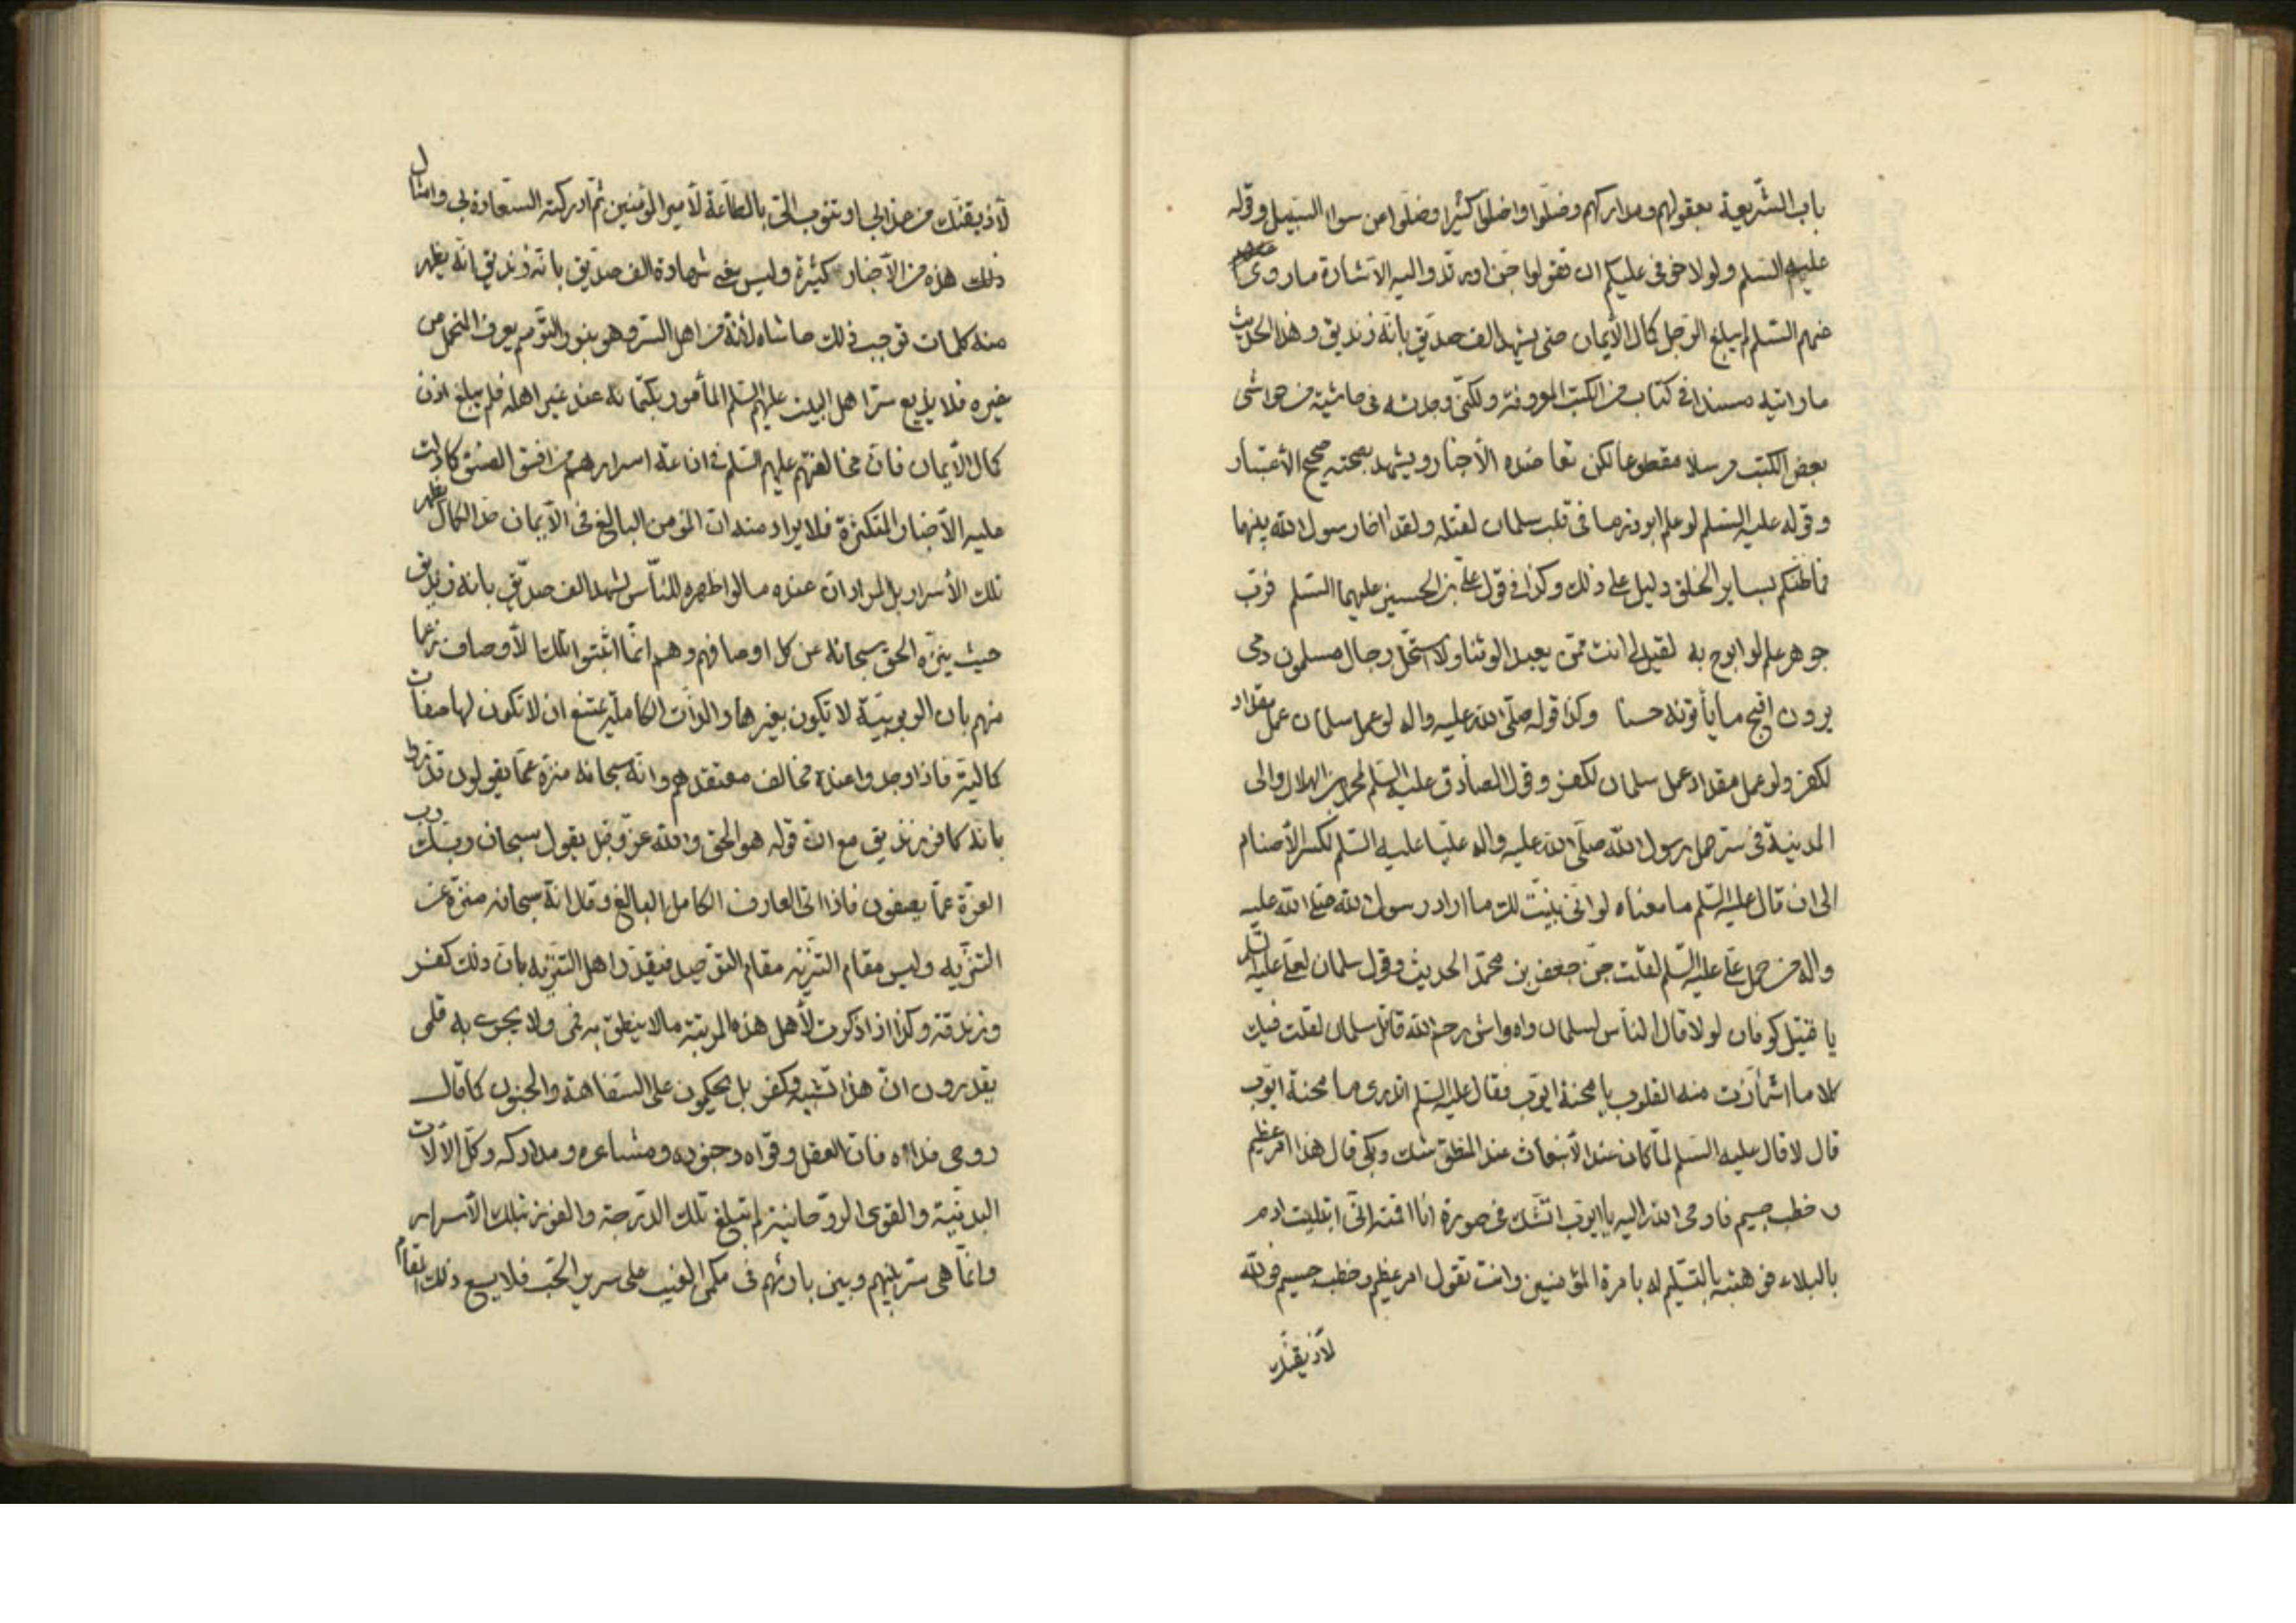 باب الشّريعة بعقولهم ومداركهم وضلّوا واضلّوا كثيرا وضلّوا عن سواء السّبيل وقوله
عليه السّلم ولولا خوفى عليكم ان تقولوا جنّ اوير تدّ واليه الاشارة ماروى
عنهم السّلم لم يبلغ الرّجل كمال الأيمان حتى يشهد الف صدّيق بأنّه زنديق وهذا الحديث
مارايته مسندا فى كتاب من الكتب المعروفة ولكنّى وجدته فى حاشية من حواشى
بعض الكتب مرسلا مقطوعا لكن تعاضده الأخبار ويشهد بصحّته صحيح الأعتبار
وقوله عليه السّلم لو علم ابوذر ما فى قلب سلمان لقتله ولقد اخا رسول الله بينهما
فما ظنّكم بساير الخلق دليل على ذلك وكذا فى قول علىّ بن الحسين عليهما السّلم فربّ
جوهر علم لو ابوح به لقيل لى انت ممّن يعبد الوثنا ولاستحلّ رجال مسلمون دمى
يرون اقبح ما يأتونه حسنا وكذا قوله صلّى الله عليه واله لو عمل سلمان عمل مقداد
لكفر ولو عمل مقداد عمل سلمان لكفر وقول الصّادق عليه السّلم لمحمد بن الهلال والى
المدينة فى سرّ حمل رسول الله صلّى الله عليه واله عليّا عليه السّلم لكسر الأصنام
الى ان قال عليه السّلم ما معناه لو انّى بيّنت لك ما اراد رسول الله صلّى الله عليه
واله من حمل علىّ عليه السّلم لقلت جنّ جعفر بن محمّد الحديث وقول سلمان لعلىّ عليه السّلم
يا قتيل كوفان لولا قال النّاس لسلمان واه واش رحم الله قاتل سلمان لقلت فيك
كلاما اشمأزّت منه القلوب يا محنة ايّوب فقال عليه السّلم اتدرى ما محنة ايّوب
قال لا قال عليه السّلم لمّا كان عند الأنبعاث عند المنطق شك وبكى قال هذا امر عظيم
و خطب جسيم فاوحى الله اليه يا ايّوب اتشكّ فى صورة انا اقمته انّى ابتليت ادم
بالبلاء فوهبته بالتّسليم له بامرة المؤمنين وانت تقول امر عظيم وخطب جسيم فوالله
لاذيقنّك
لأذيقنّك من عذابى او تتوب الىّ بالطّاعة لأمير المؤمنين ثمّ ادركته السّعادة بى وامثال
ذلك هذه من الأخبار كثيرة وليس بغى شهادة الف صدّيق بانّه زنديق انّه يظهر
منه كلمات توجب ذلك حاشاه لأنّه من اهل السّرّ وهو بنور التّوسّم يعرف المتحمّل من
غيره فلا يذيع سرّ اهل البيت عليهم السّلم المأمور بكتمانه عند غير اهله فلم يبلغ اذن
كمال الأيمان فانّ مخالفتهم عليهم السّلم فى اذاعة اسرارهم من افسق الفسق كما دلّت
عليه الأخبار المتكثّرة فلا يراد منه انّ المؤمن البالغ فى الأيمان حدّ الكمال يظهر
تلك الأسرار بل المراد انّ عنده ما لو اظهره للنّاس لشهد الف صدّيق بانه زنديق
حيث ينزّه الحق سبحانه عن كل اوصافهم وهم انّما اثبتوا تلك الأوصاف زعما
منهم بان الربوبيّة لا تكون بغيرها والذّات الكاملة يمتنع ان لا تكون لها صفات
كماليّة فاذا وجدوا عنده مخالف معتقدهم وانّه سبحانه منزّه عمّا يقولون
بانه كافر زنديق مع انّ قوله هو الحق والله عزّ وجل يقول سبحان ربّك ربّ
العزّة عمّا يصفون فاذا اتى العارف الكامل البالغ وقال انّه سبحانه منزّه عن
التنزيه وليس مقام التنزيه مقام التوحيد فيقدّر اهل التنزيه بان ذلك كفر
وزندقة وكذا اذا ذكرت لأهل هذه المرتبة ما لا ينطق به فمى ولا يجرى به قلمى
يقدرون انّ هذا تشبيه وكفر بل يحكمون على السّفاهة والجنون كما قال
روحى فداه فانّ العقل وقواه وجنوده ومشاعره ومداركه وكلّ الالات
البدنيّة والقوى الرّوحانية لم تبلغ تلك الدّرجة والفوز بتلك الأسرار
وانّما هى سرّ بينهم وبين بارئهم فى مكمن الغيب على سرير الحبّ فلا يسع ذلك المقام